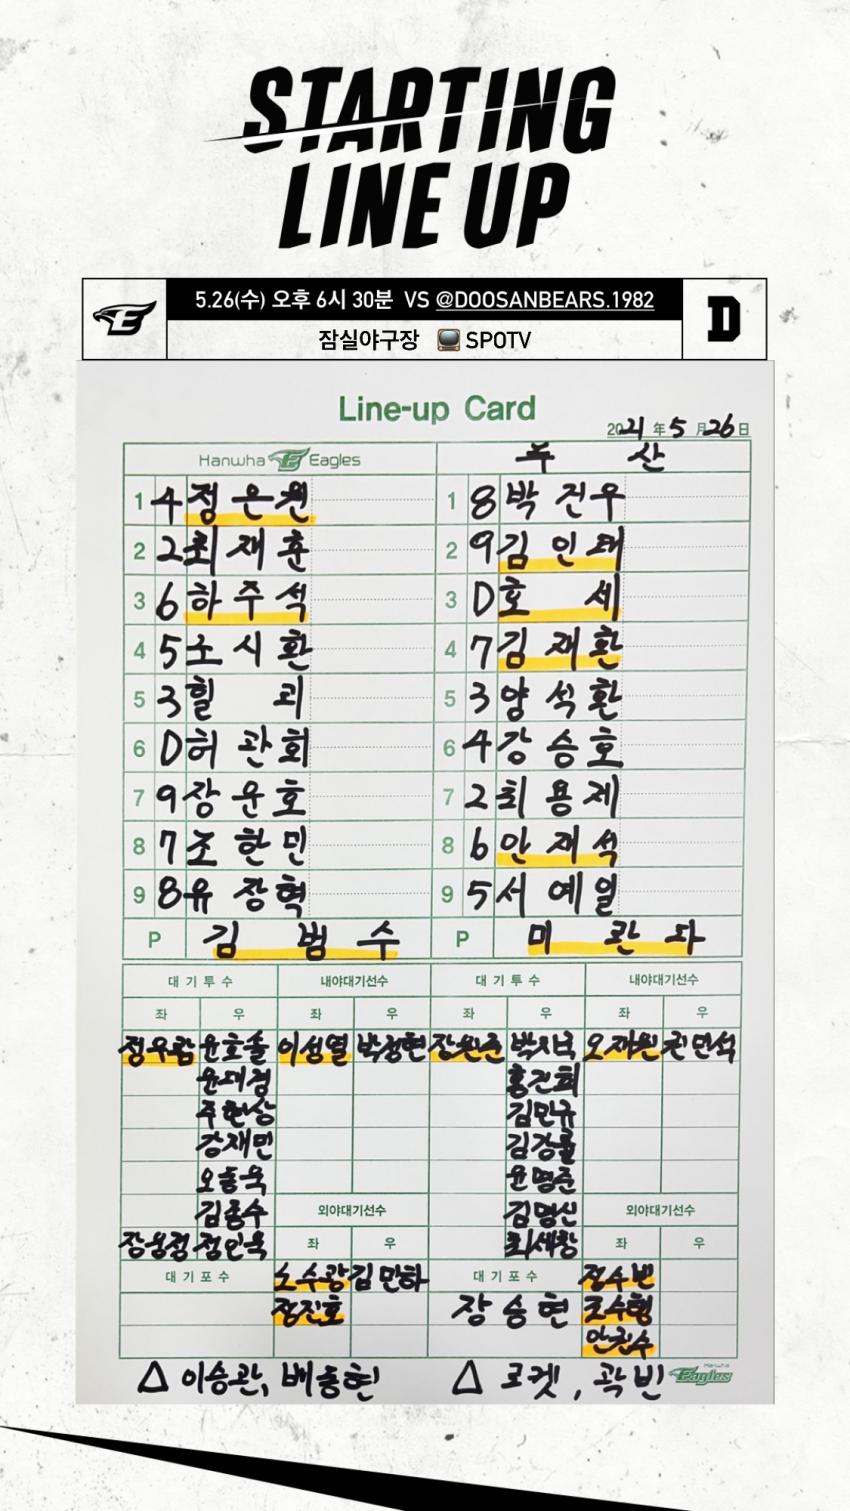 STARTING
LINE UP
5.26(수) 오후 6시 30분 VS @DOOSANBEARS.1982
D
잠실야구장 SPOTV
Line-up Card
2021 年 5 月 26 日
Hanwha Eagles 두 산
1 4 정 은 원 1 8 박 건 우
2 2 최 재 훈 2 9 김 인 태
3 6 하 주 석 3 D 호 세
4 5 노 시 환 4 7 김 재 환
5 3 힐 리 5 3 양 석 환
6 D 허 관 회 6 4 강 승 호
7 9 장 운 호 7 2 최 용 제
8 7 조 한 민 8 6 안 재 석
9 8 유 장 혁 9 5 서 예 일
P 김 범 수 P 미 란 다
대 기 투 수 내야대기선수 대 기 투 수 내야대기선수
좌 우 좌 우
정우람 윤호솔 이성열 박정현 장원준 박치국 오재원 권민석
윤대경 홍건희
주현상 김민규
강재민 김강률
오동욱 윤명준
김종수 외야대기선수 김명신 외야대기선수
장웅정 정인욱 좌 우 최세창 좌 우
대 기 포 수 노수광 김민하 대 기 포 수 정수빈
정진호 장 승 현 조수행
안권수
△ 이승관, 배동현 △ 로켓, 곽빈 Hanwha Eagles